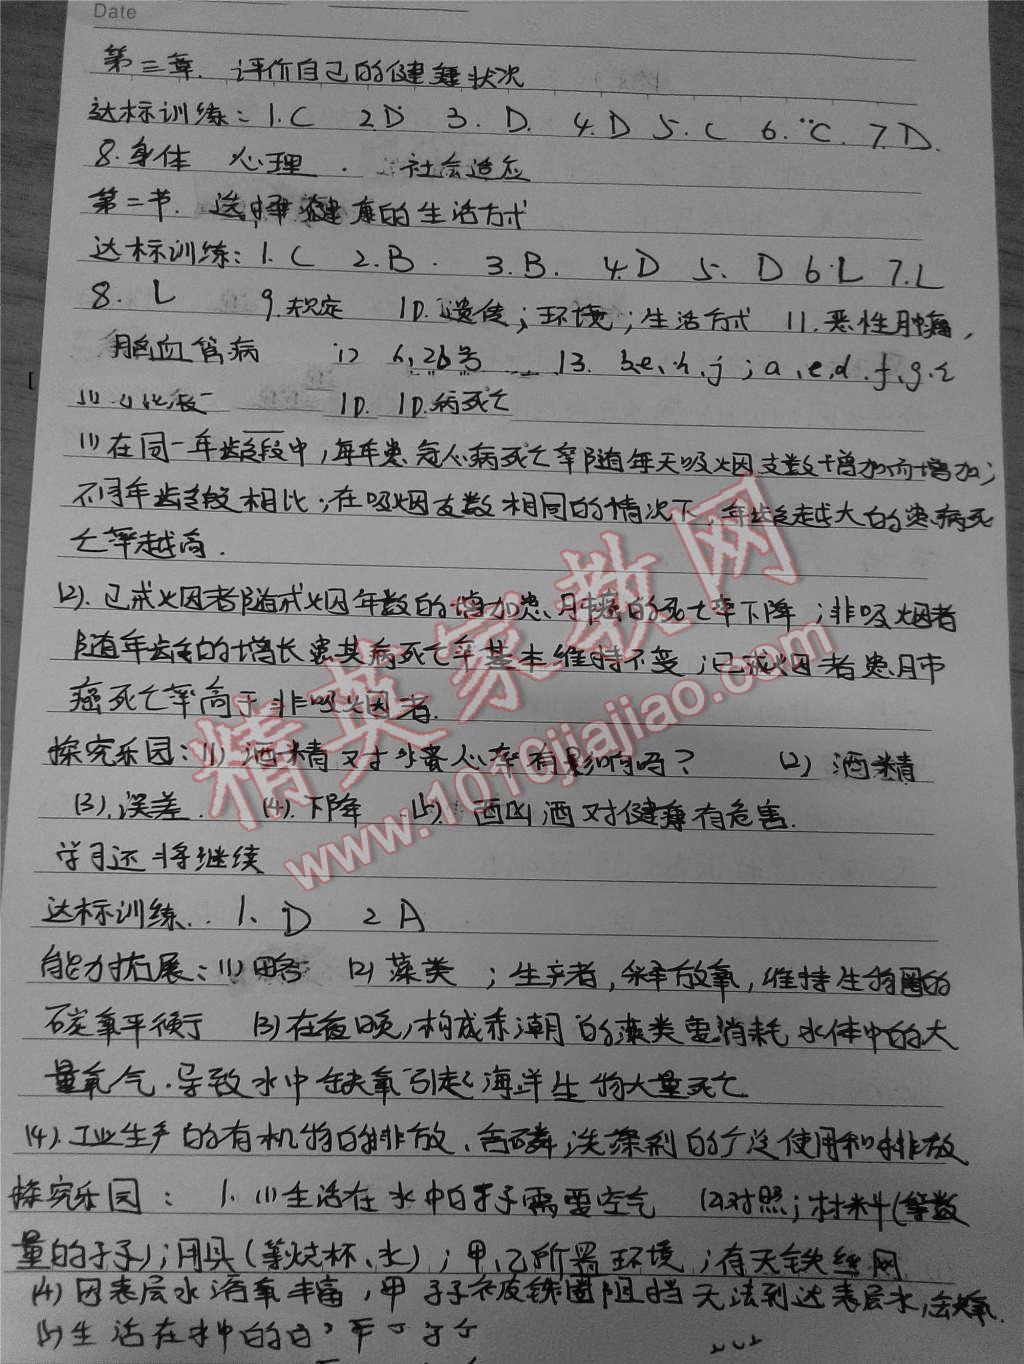 Date
第三章. 评价自己的健康状况
达标训练: 1.C 2.D 3. D. 4.D 5.C 6.C. 7.D.
8.身体 心理 . 社会适应
第二节. 选择健康的生活方式
达标训练: 1.C 2.B. 3.B. 4.D 5. D 6.C 7.C
8. C 9.规定 10.遗传; 环境; 生活方式 11.恶性肿瘤,
脑血管病 13. a、e、d、f、g、
10. 病死亡
(1)在同一年龄段中,每年患冠心病死亡率随每天吸烟支数增加而增加;
不同年龄段相比;在吸烟支数相同的情况下,年龄越大的患病死
亡率越高.
(2).已戒烟者随戒烟年数的增加患肺癌的死亡率下降;非吸烟者
随年龄的增长患其病死亡率基本维持不变;已戒烟者患肺
癌死亡率高于非吸烟者.
探究乐园:(1)酒精对水蚤心率有影响吗? (2)酒精
(3).误差. (4).下降 (5). 酗酒对健康有危害.
学习还将继续
达标训练.. 1、D 2 A
能力拓展:(1)略 (2)藻类 ;生产者,释放氧,维持生物圈的
碳氧平衡 (3)在夜晚,构成赤潮的藻类要消耗水体中的大
量氧气.导致水中缺氧引起海洋生物大量死亡
(4).工业生产的有机物的排放、含磷洗涤剂的广泛使用和排放
探究乐园: 1.(1)生活在水中的孑孓需要空气 (2)对照;材料(等数
量的孑孓);用具(等烧杯、水);甲、乙所置环境;有无铁丝网
(4)因表层水溶氧丰富,甲孑孓被铁圈阻挡无法到达表层水,缺氧.
(5)生活在水中的
精英家教网
www.1010jiajiao.com